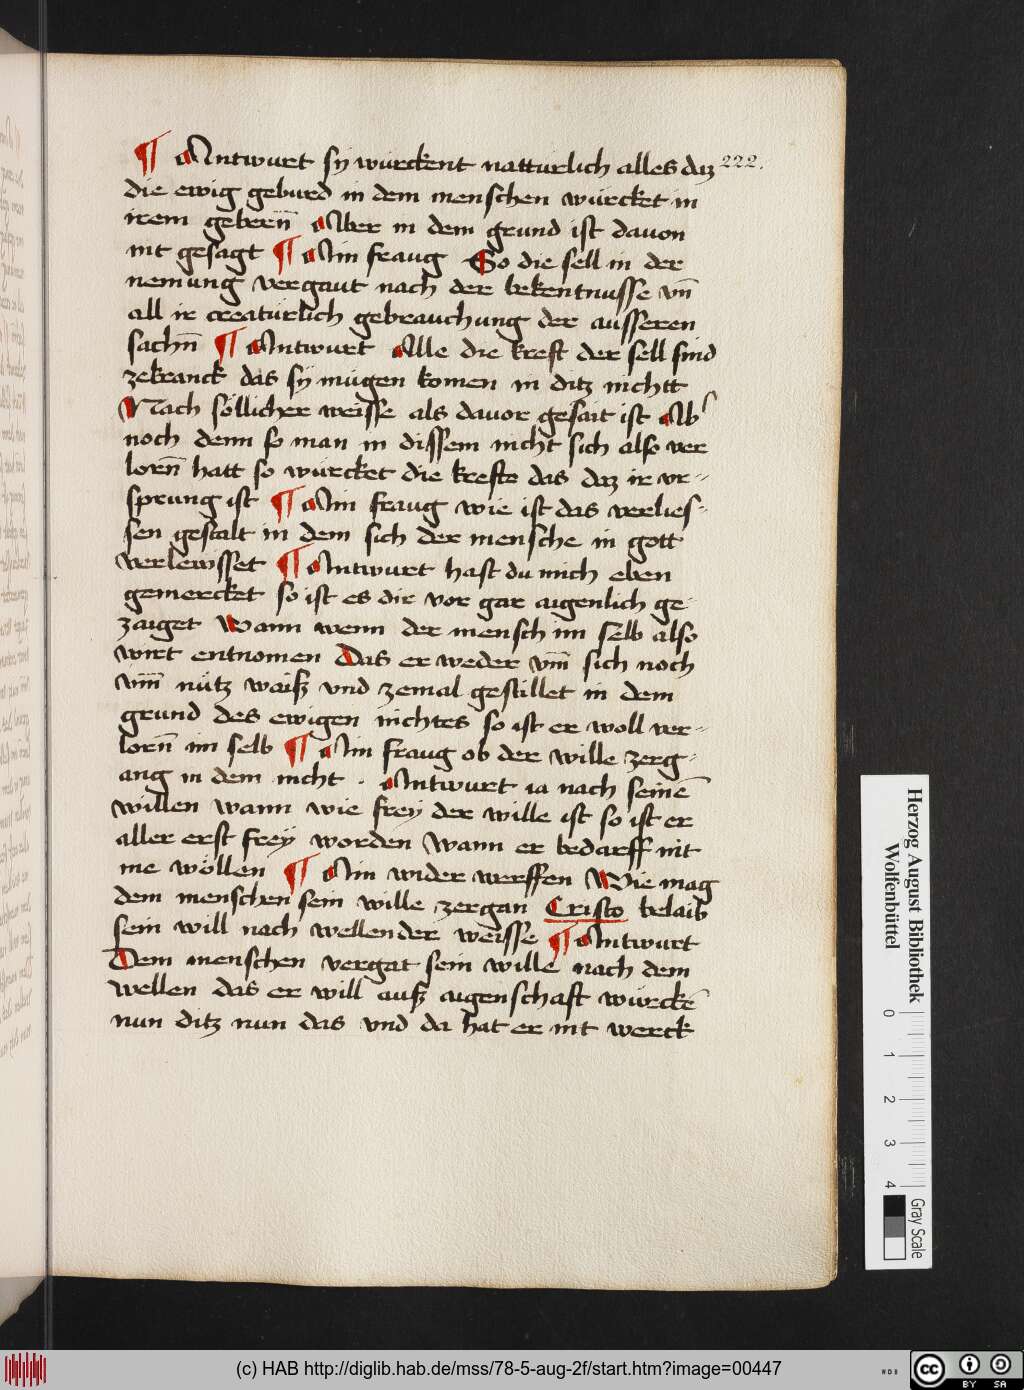 ¶ Antwurt sÿ würckent nattürlich alles daz 222.
die ewig geburd in dem menschen würcket in
irem gebern̄ Aber in dem grund ist davon
nit gesagt ¶ Ain fraug So die sell in der
nemung vergaut nach der bekentnusse vn̄
all ir creatürlich gebrauchung der ausseren
sachn̄ ¶ Antwurt Alle die kreft der sell sind
zekranck das sÿ mügen komen in ditz nichtt
Nach söllicher weisse als davor gesait ist Ab
noch denn so man in dissem nicht sich also ver
lorn̄ hatt so würcket die krefte das daz ir vr-
sprung ist ¶ Ain fraug wie ist das verlies-
sen gestalt in dem sich der mensche in gott
verlewsset ¶ Antwurt hast du mich eben
gemercket so ist es dir vor gar aigenlich ge-
zaiget Wann wenn der mensch im selb also
wirt entnomen Das er weder vm̄ sich noch
vm̄ nütz waiß vnd zemal gestillet in dem
grund des ewigen nichtes so ist er woll ver-
lorn̄ im selb ¶ Ain fraug ob der wille zerg-
ang in dem nicht . Antwurt ia nach seinē
willen wann wie freÿ der wille ist so ist er
aller erst freÿ worden Wann er bedarff nit
me wöllen ¶ Ain wider werffen Wie mag
dem menschen sein wille zergan Cristo belaib
sein will nach wellender weisse ¶ Antwurt
Dem menschen vergat sein wille nach dem
wellen das er will auß aigenschaft würckē
nun ditz nun das vnd da hat er nit werck
Herzog August Bibliothek
Wolfenbüttel
0 1 2 3 4
Gray Scale
(c) HAB http://diglib.hab.de/mss/78-5-aug-2f/start.htm?image=00447
WDB
cc BY SA